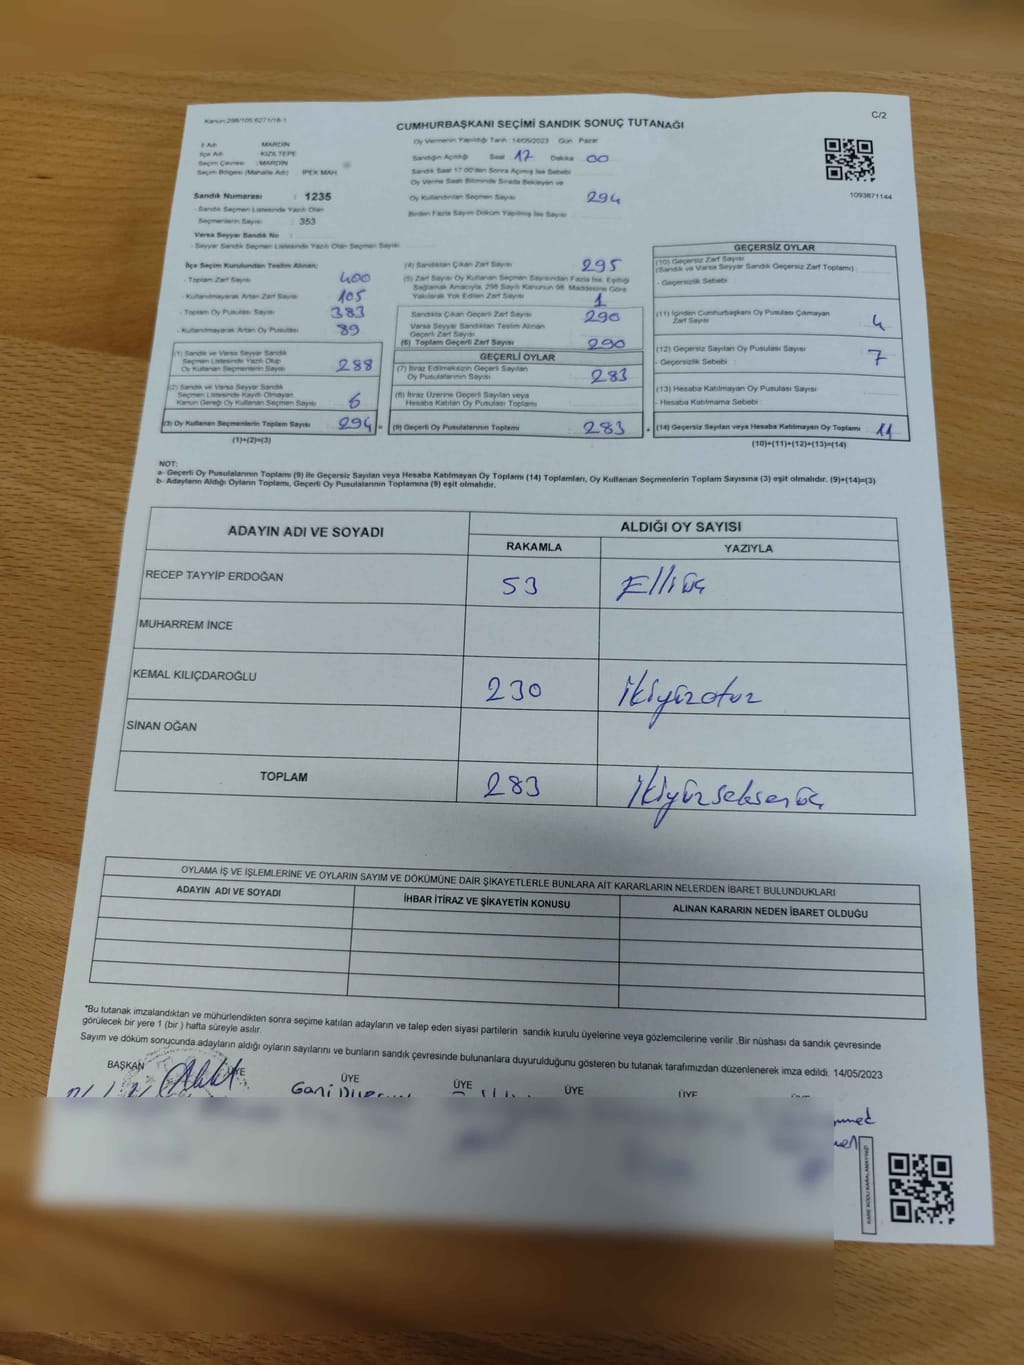 Kanun:298/105 6271/16-1
C/2
CUMHURBAŞKANI SEÇİMİ SANDIK SONUÇ TUTANAĞI
İl Adı : MARDİN
İlçe Adı : KIZILTEPE
Seçim Çevresi : MARDİN
Seçim Bölgesi (Mahalle Adı) : İPEK MAH
Sandık Numarası : 1235
- Sandık Seçmen Listesinde Yazılı Olan
Seçmenlerin Sayısı : 353
Varsa Seyyar Sandık No :
- Seyyar Sandık Seçmen Listesinde Yazılı Olan Seçmen Sayısı :
Oy Vermenin Yapıldığı Tarih 14/05/2023 Gün : Pazar
Sandığın Açıldığı Saat 17 Dakika 00
Sandık Saat 17:00'den Sonra Açılmış İse Sebebi
Oy Verme Saati Bitiminde Sırada Bekleyen ve
Oy Kullandırılan Seçmen Sayısı : 294
Birden Fazla Sayım Döküm Yapılmış İse Sayısı :
1093871144
İlçe Seçim Kurulundan Teslim Alınan;
- Toplam Zarf Sayısı : 400
- Kullanılmayarak Artan Zarf Sayısı : 105
- Toplam Oy Pusulası : 383
- Kullanılmayarak Artan Oy Pusulası : 89
(1) Sandık ve Varsa Seyyar Sandık
Seçmen Listesinde Yazılı Olup
Oy Kullanan Seçmenlerin Sayısı : 288
(2) Sandık ve Varsa Seyyar Sandık
Seçmen Listesinde Kayıtlı Olmayan
Kanun Gereği Oy Kullanan Seçmen Sayısı : 6
(3) Oy Kullanan Seçmenlerin Toplam Sayısı : 294 =
(1)+(2)=(3)
(4) Sandıktan Çıkan Zarf Sayısı : 295
(5) Zarf Sayısı Oy Kullanan Seçmen Sayısından Fazla İse, Eşitliği
Sağlamak Amacıyla, 298 Sayılı Kanunun 98. Maddesine Göre
Yakılarak Yok Edilen Zarf Sayısı : 1
Sandıkta Çıkan Geçerli Zarf Sayısı : 290
Varsa Seyyar Sandıktan Teslim Alınan
Geçerli Zarf Sayısı :
(6) Toplam Geçerli Zarf Sayısı : 290
GEÇERLİ OYLAR
(7) İtiraz Edilmeksizin Geçerli Sayılan
Oy Pusulalarının Sayısı : 283
(8) İtiraz Üzerine Geçerli Sayılan veya
Hesaba Katılan Oy Pusulası Toplamı :
(9) Geçerli Oy Pusulalarının Toplamı : 283 +
GEÇERSİZ OYLAR
(10) Geçersiz Zarf Sayısı
(Sandık ve Varsa Seyyar Sandık Geçersiz Zarf Toplamı) :
- Geçersizlik Sebebi :
(11) İçinden Cumhurbaşkanı Oy Pusulası Çıkmayan
Zarf Sayısı : 4
(12) Geçersiz Sayılan Oy Pusulası Sayısı : 7
- Geçersizlik Sebebi :
(13) Hesaba Katılmayan Oy Pusulası Sayısı :
- Hesaba Katılmama Sebebi :
(14) Geçersiz Sayılan veya Hesaba Katılmayan Oy Toplamı : 11
(10)+(11)+(12)+(13)=(14)
NOT:
a- Geçerli Oy Pusulalarının Toplamı (9) ile Geçersiz Sayılan veya Hesaba Katılmayan Oy Toplamı (14) Toplamları, Oy Kullanan Seçmenlerin Toplam Sayısına (3) eşit olmalıdır. (9)+(14)=(3)
b- Adayların Aldığı Oyların Toplamı, Geçerli Oy Pusulalarının Toplamına (9) eşit olmalıdır.
ADAYIN ADI VE SOYADI
ALDIĞI OY SAYISI
RAKAMLA YAZIYLA
RECEP TAYYİP ERDOĞAN 53 Elliüç
MUHARREM İNCE
KEMAL KILIÇDAROĞLU 230 İkiyüzotuz
SİNAN OĞAN
TOPLAM 283 İkiyüzseksenüç
OYLAMA İŞ VE İŞLEMLERİNE VE OYLARIN SAYIM VE DÖKÜMÜNE DAİR ŞİKAYETLERLE BUNLARA AİT KARARLARIN NELERDEN İBARET BULUNDUKLARI
ADAYIN ADI VE SOYADI İHBAR İTİRAZ VE ŞİKAYETİN KONUSU ALINAN KARARIN NEDEN İBARET OLDUĞU
*Bu tutanak imzalandıktan ve mühürlendikten sonra seçime katılan adayların ve talep eden siyasi partilerin sandık kurulu üyelerine veya gözlemcilerine verilir .Bir nüshası da sandık çevresinde
görülecek bir yere 1 (bir ) hafta süreyle asılır.
Sayım ve döküm sonucunda adayların aldığı oyların sayılarını ve bunların sandık çevresinde bulunanlara duyurulduğunu gösteren bu tutanak tarafımızdan düzenlenerek imza edildi. 14/05/2023
BAŞKAN ÜYE ÜYE ÜYE ÜYE ÜYE
Gani
KARE KODU KARALAMAYINIZ!